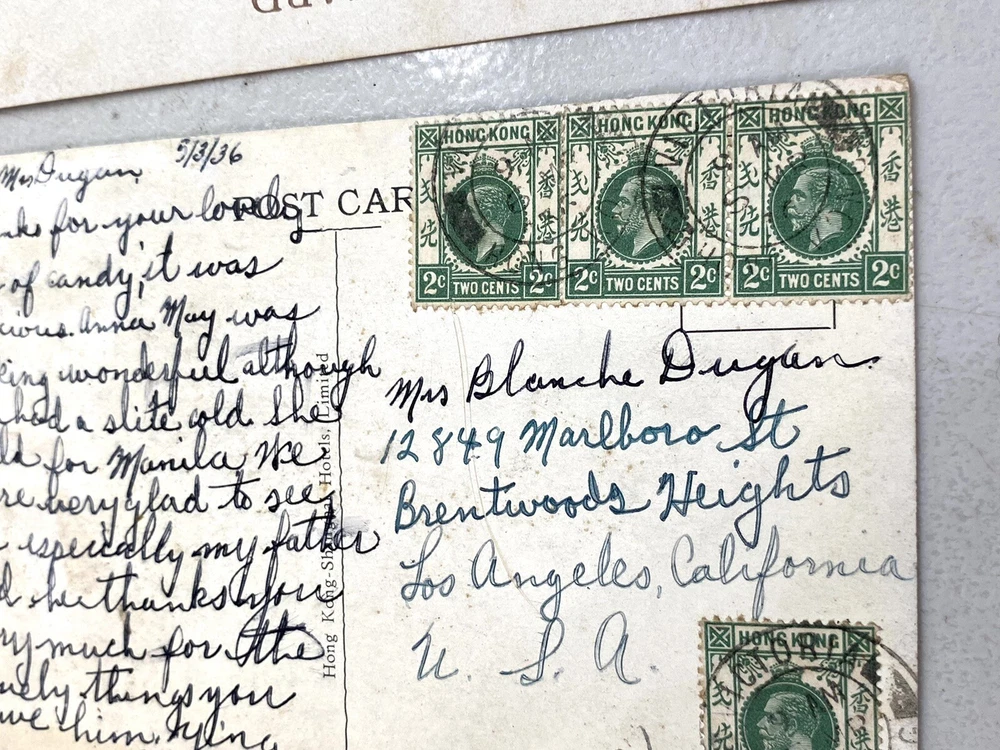 5/3/36
Mrs Dugan,
for your lovely
of candy, it was
Anna May was
wonderful although
had a slite cold She
for Manila We
very glad to see
especially my father
he thanks you
much for the
things you
him. Ying
POST CAR
Hong Kong-Sh Hotels, Limited
HONG KONG
2c TWO CENTS 2c
HONG KONG
香港
2c TWO CENTS 2c
HONG KONG
香港
2c TWO CENTS 2c
香港
Mrs Blanche Dugan.
12849 Marlboro St
Brentwoods Heights
Los Angeles, California
U. S. A.
HONG KONG
VICTORIA
香